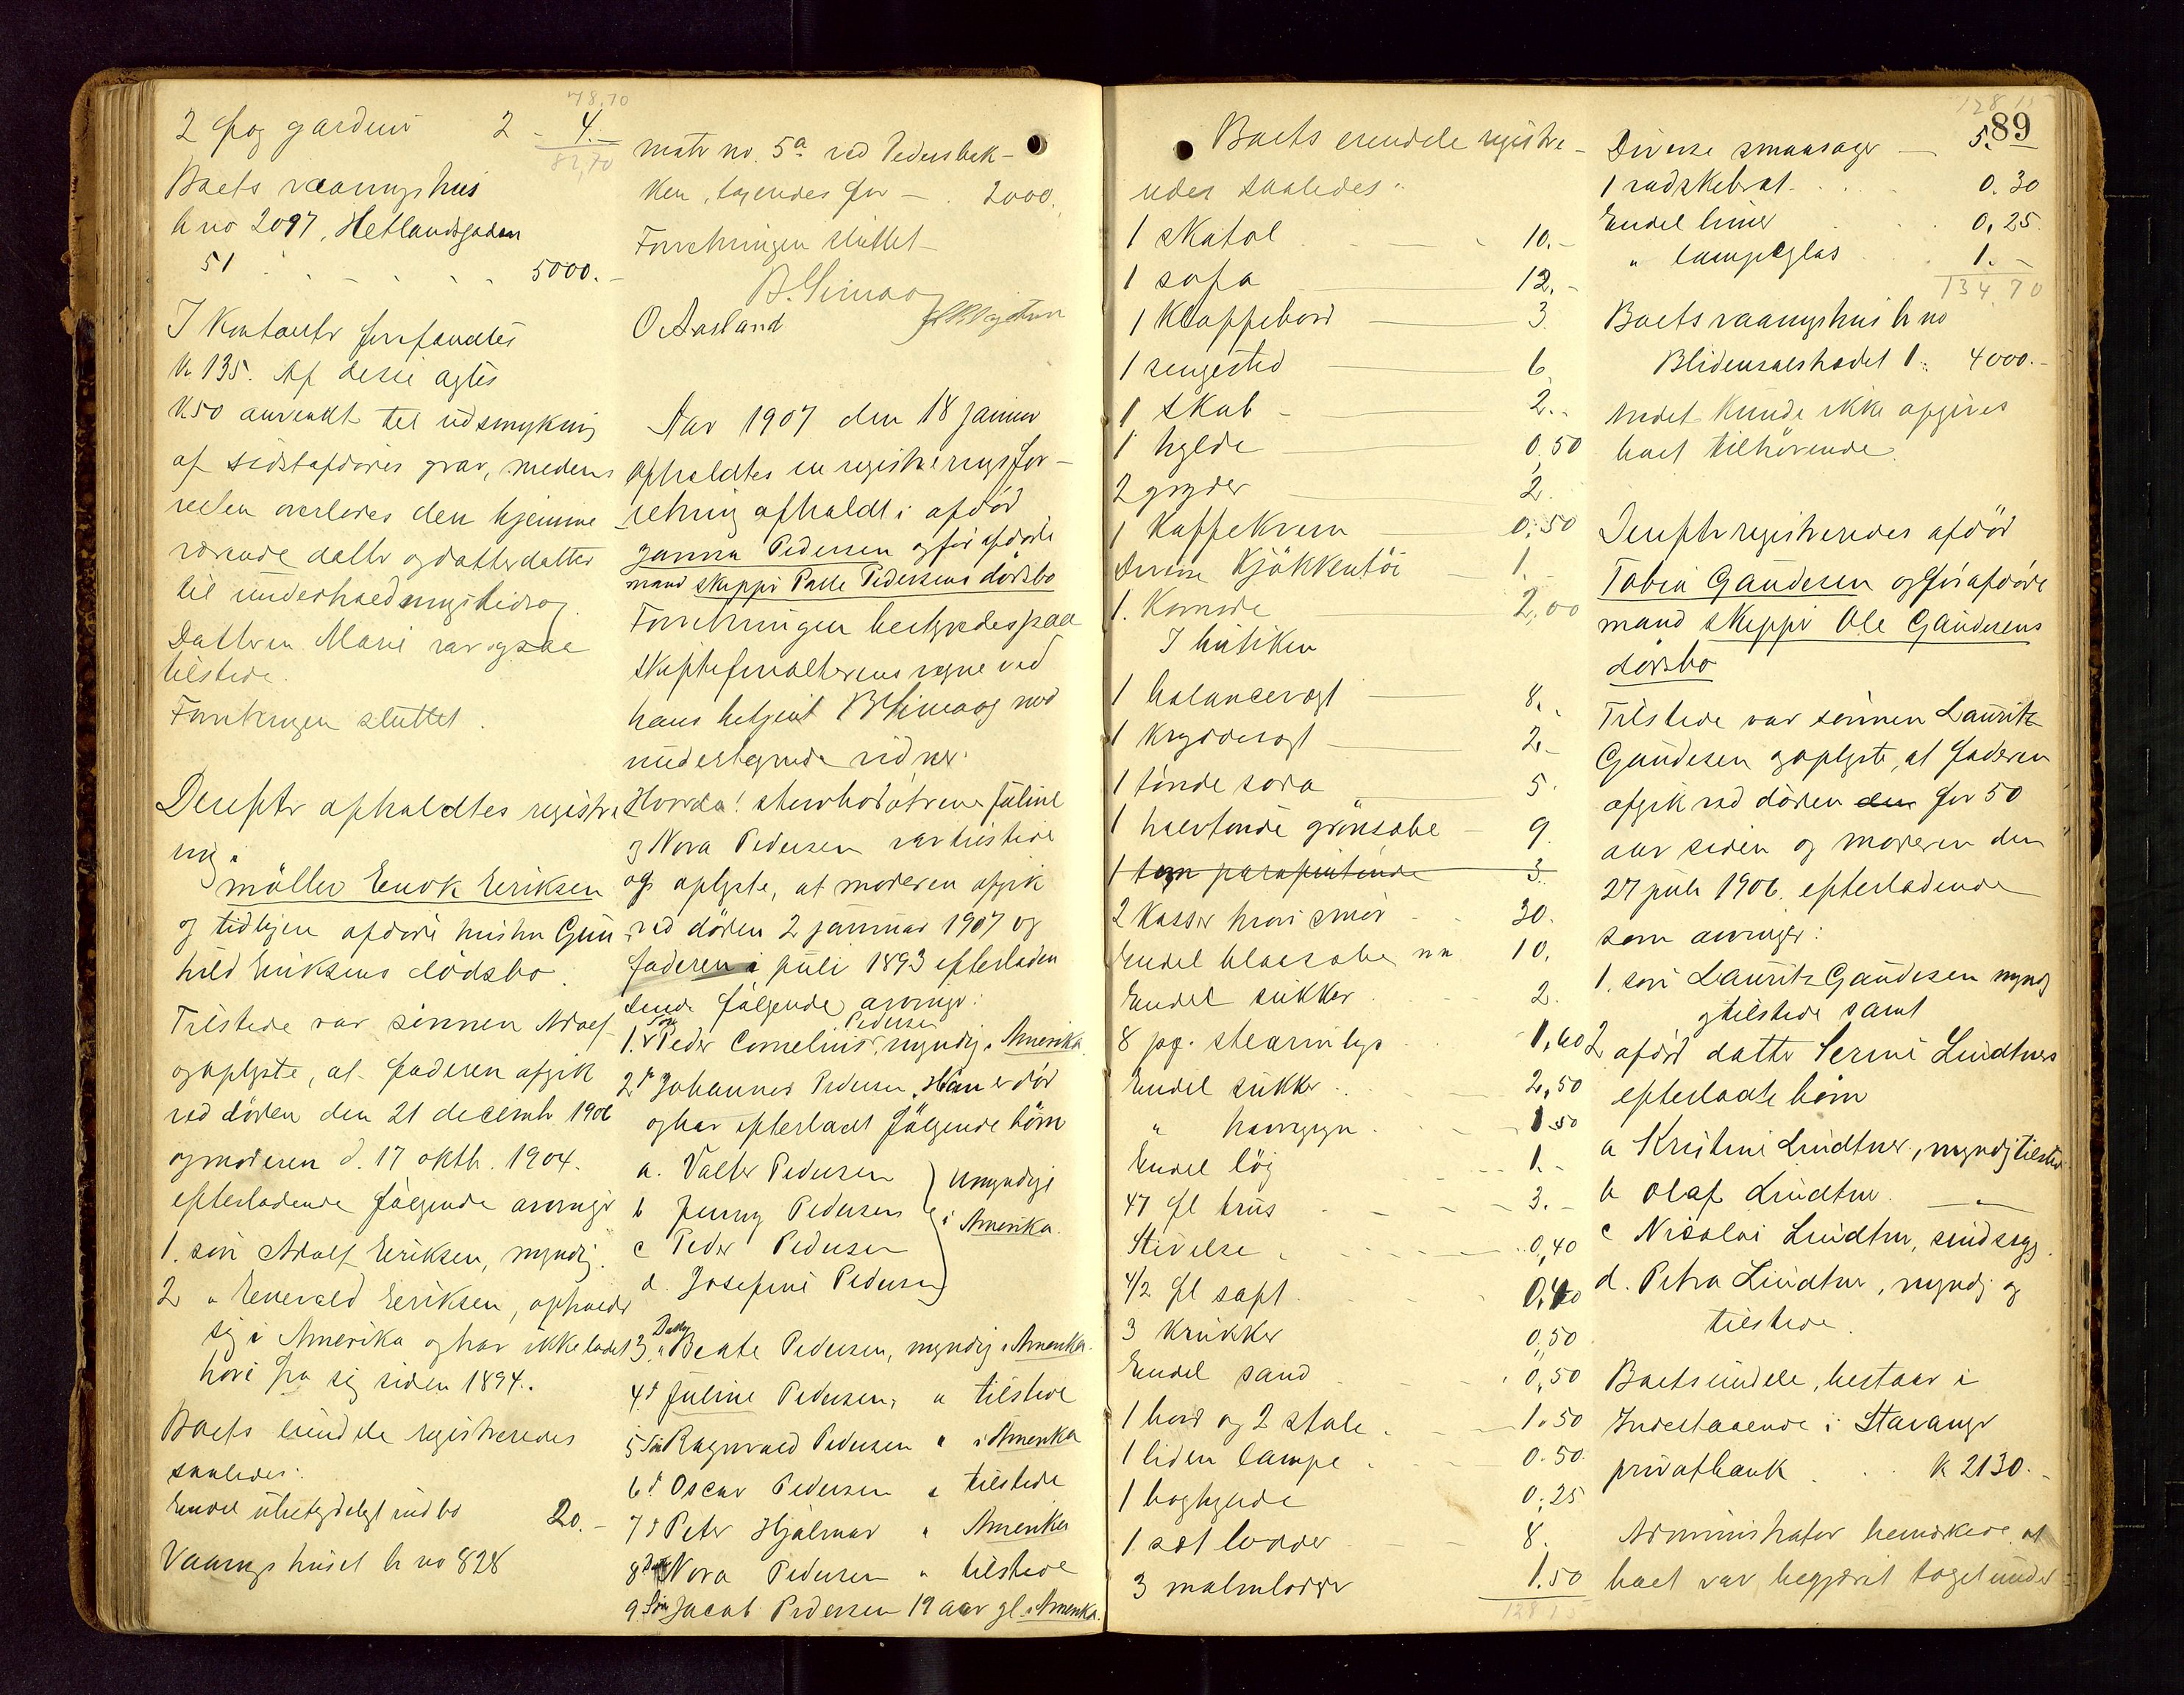 78,70
2 fag gardiner 2 - 4.-
82,70
Boets vaaningshus
br no 2097, Hetlandsgaden
51 . . . . . 5000.-
I Kontanter forefandtes
kr 135. Af disse agtes
k. 50 anvendt til udsmykning
af sidstafdødes grav, medens
resten overlodes den hjemme
værende datter og datterdatter
til underholdningsbidrag.
Datteren Marie var ogsaa
tilstede.
Forretningen sluttet.
Derefter afholdtes registre
ring i
møller Enok Eriksen
og tidligere afdøde hustru Gun
hild Eriksens dødsbo.
Tilstede var sønnen Adolf
og oplyste, at faderen afgik
ved døden den 21 decembr 1906
og moderen d. 17 oktbr. 1904.
efterladende følgende arvinger
1. søn Adolf Eriksen, myndig.
2 " Enevald Eriksen, opholder
sig i Amerika og har ikke ladet
høre fra sig siden 1894.
Boets eiendele registreredes
saaledes:
Endel ubetydeligt indbo 20.-
Vaaningshuset br no 828
matr no. 5a ved Pedersbak-
ken, . . . for - . 2000.
Forretningen sluttet
B. Simao
O Aasland
Aar 1907 den 18 januar
afholdtes en registreringsfor-
retning afholdt i afdød
Janna Pedersen og før afdøde
mand skipper Palle Pedersens dødsbo
Forretningen bestyredes paa
skifteforvalterens vegne ved
hans betjent B Simao og med
undertegnede vidner.
Hvorda! stervboets døtrene Juline
og Nora Pedersen var tilstede
og oplyste, at moderen afgik
ved døden 2 januar 1907 og
faderen i juli 1893 efterladen
dende følgende arvinger:
1. Søn Peder Cornelius Pedersen, myndig i Amerika
2 " Johannes Pedersen. Han er død
og har efterladt følgende børn
a. Valter Pedersen } Umyndige
b Jenny Pedersen } i Amerika.
c Peder Pedersen
d. Josefine Pedersen
3. Datter Beate Pedersen, myndig i Amerika.
4 " Juline Pedersen, " tilstede
5 Søn Ragnvald Pedersen " i Amerika
6 " Oscar Pedersen " tilstede
7 " Peter Hjalmar " Amerika
8 Datter Nora Pedersen " tilstede
9 Søn Jacob Pedersen 19 aar gl. i Amerika.
Boets eiendele registre-
redes saaledes:
1 skatol - 10.-
1 sofa 12.-
1 Klappebord 3
1 sengested 6
1 skab - 2.-
1 hylde 0,50
2 gryder 2.
1 Kaffekvern 0,50
Diverse Kjøkkentøi - 1.-
1. Komode 2,00
I butiken
1 balancevægt 8.-
1 Kryddervægt 2.-
1 tønde soda 5.
1 halvtønde grønsæbe - 9.
1 tom parafintønde 3.
2 Kasser hvori smør 30.
Endel blaasæbe mm 10.
Endel sukker 2.
8 pg. stearinlys 1,60
Endel sukker 2,50
" havregryn 1.50
Endel løg 1.-
47 fl brus 3.-
Stivelse 0,40
4/2 fl saft 0,40
3 Krukker 0,50
Endel sand 0,50
1 bord og 2 stole 1.50
1 liden lampe 0.50
1 boghylde 0,25
1 sæt lodder 8.
3 malmlodder 1.50
128 15
128 15
89
Diverse smaasager - 5.-
1 . . . 0.30
Endel limer 0,25
" lampeglas 1.-
134.70
Boets vaaningshus br no
Blidensolstrædet 1. 4000.-
Andet kunde ikke opgives
boet tilhørende.
Derefter registreredes afdød
Tobia Gaudesen og før afdøde
mand skipper Ole Gaudesens
dødsbo
Tilstede var sønnen Lauritz
Gaudesen og oplyste, at faderen
afgik ved døden den for 50
aar siden og moderen den
27 juli 1906. efterladende
som arvinger:
1. søn Lauritz Gaudesen myndig
og tilstede samt
2 afdød datter Serine Lindtners
efterladte børn
a Kristine Lindtner, myndig tilstede
b Olaf Lindtner. - " -
c Nicolai Lindtner, sindssyg.
d. Petra Lindtner, myndig og
tilstede.
Boets eiendele, bestaar i
Indestaaende i Stavanger
privatbank . . . k 2130.-
Administrator bemærkede at
boet var begjæret taget under